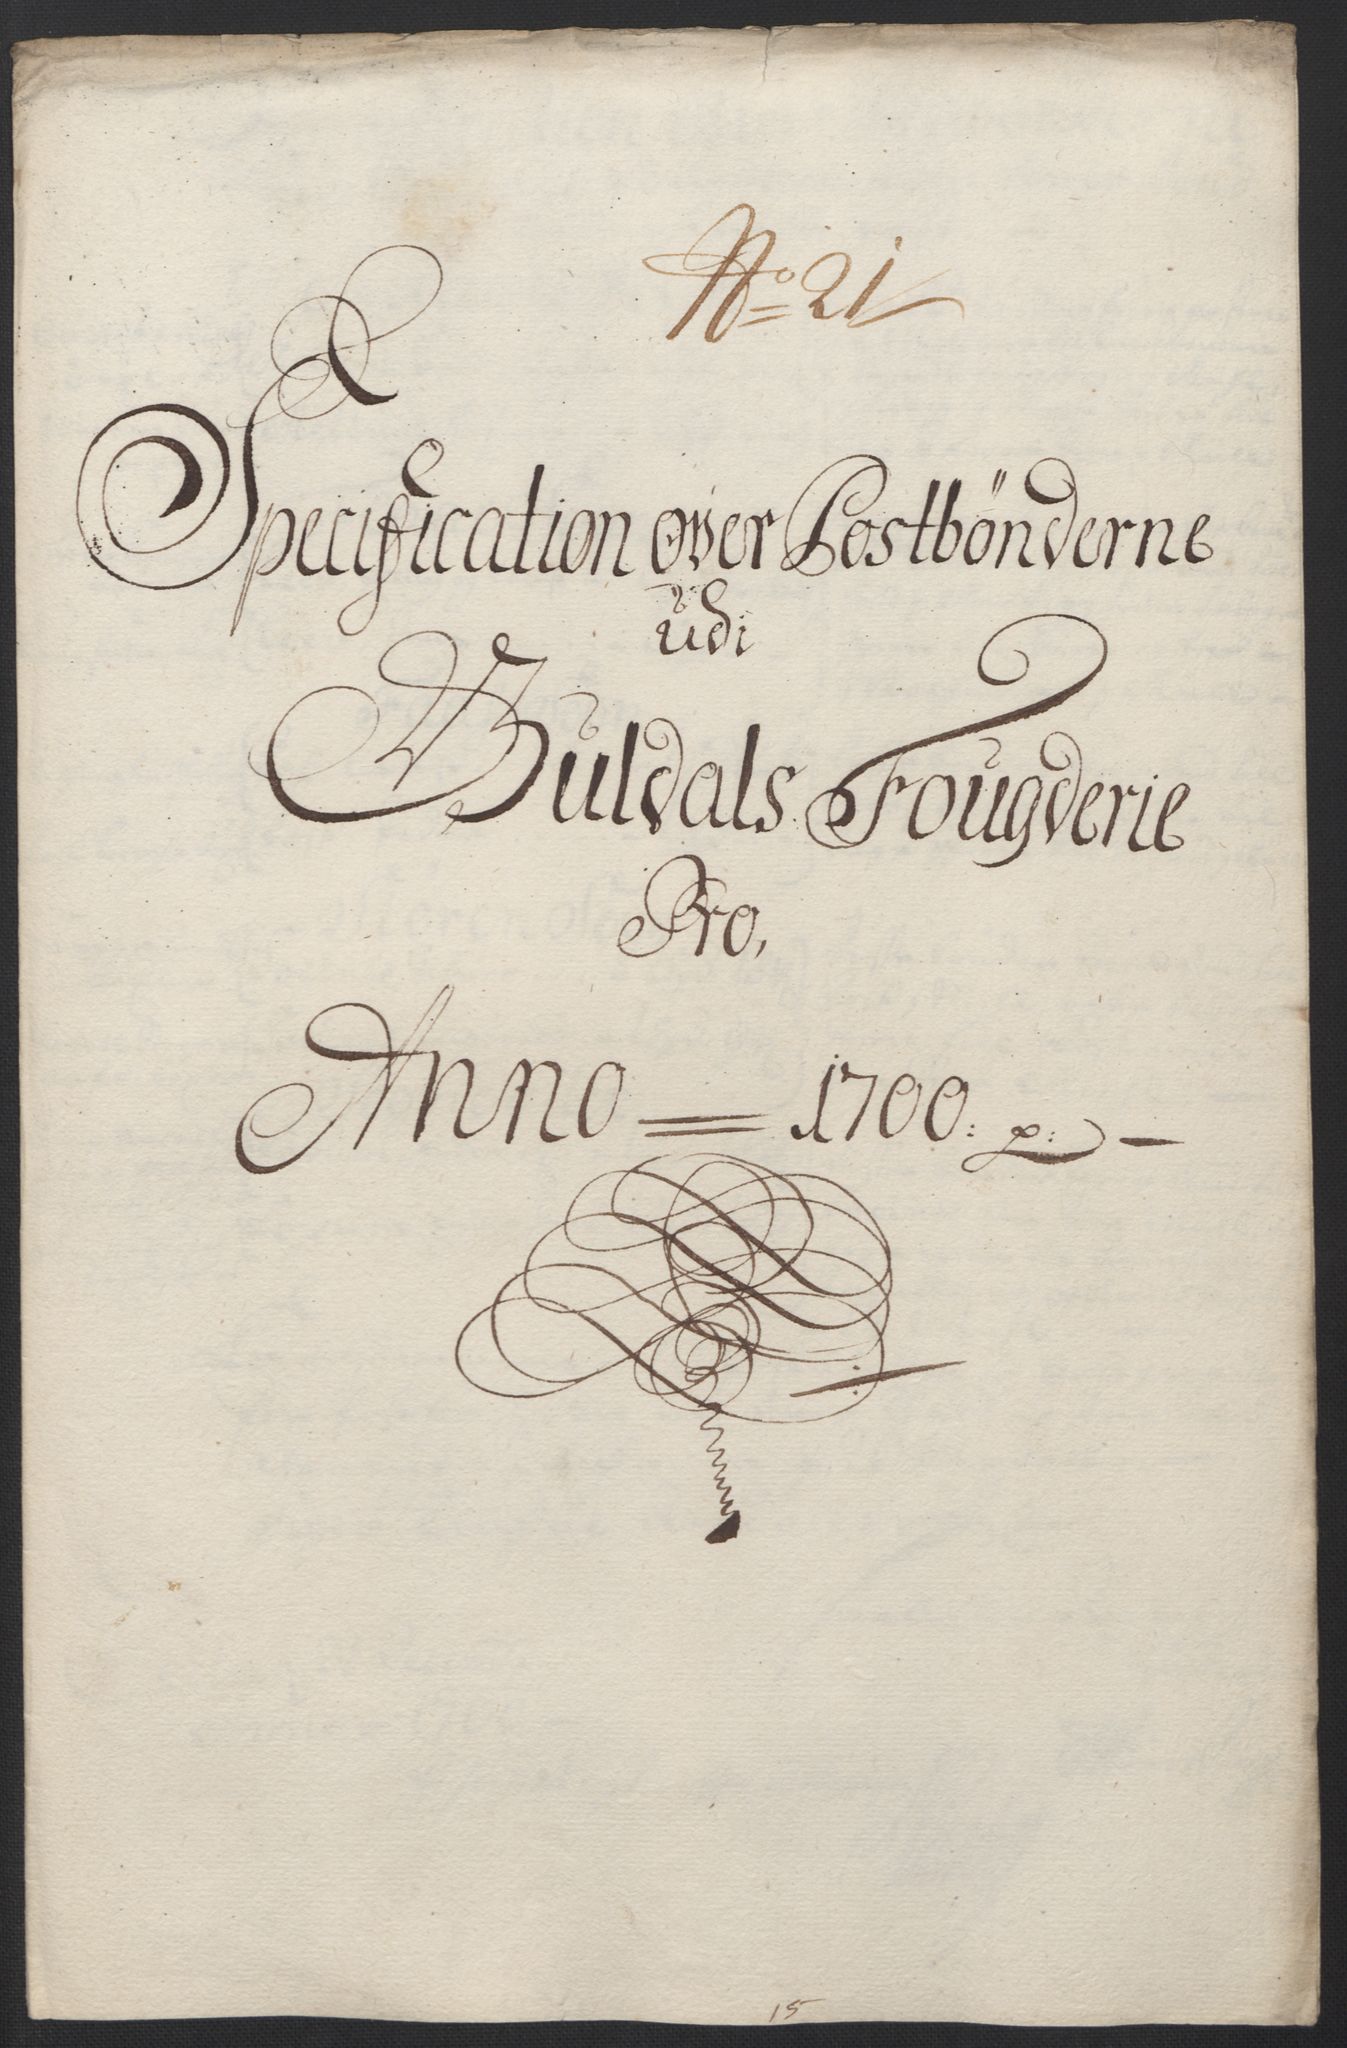 No 21
Specification over Postbönderne
udi
Guldals Fougderie
Pro,
Anno = 1700:
15